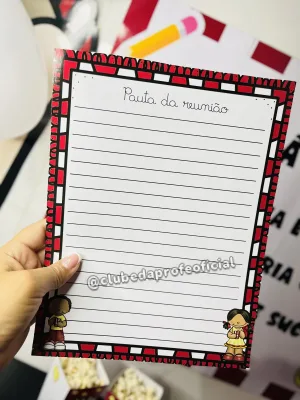 Pauta da reunião
@clubedaprofeoficial
ÃO
RIA
SUC